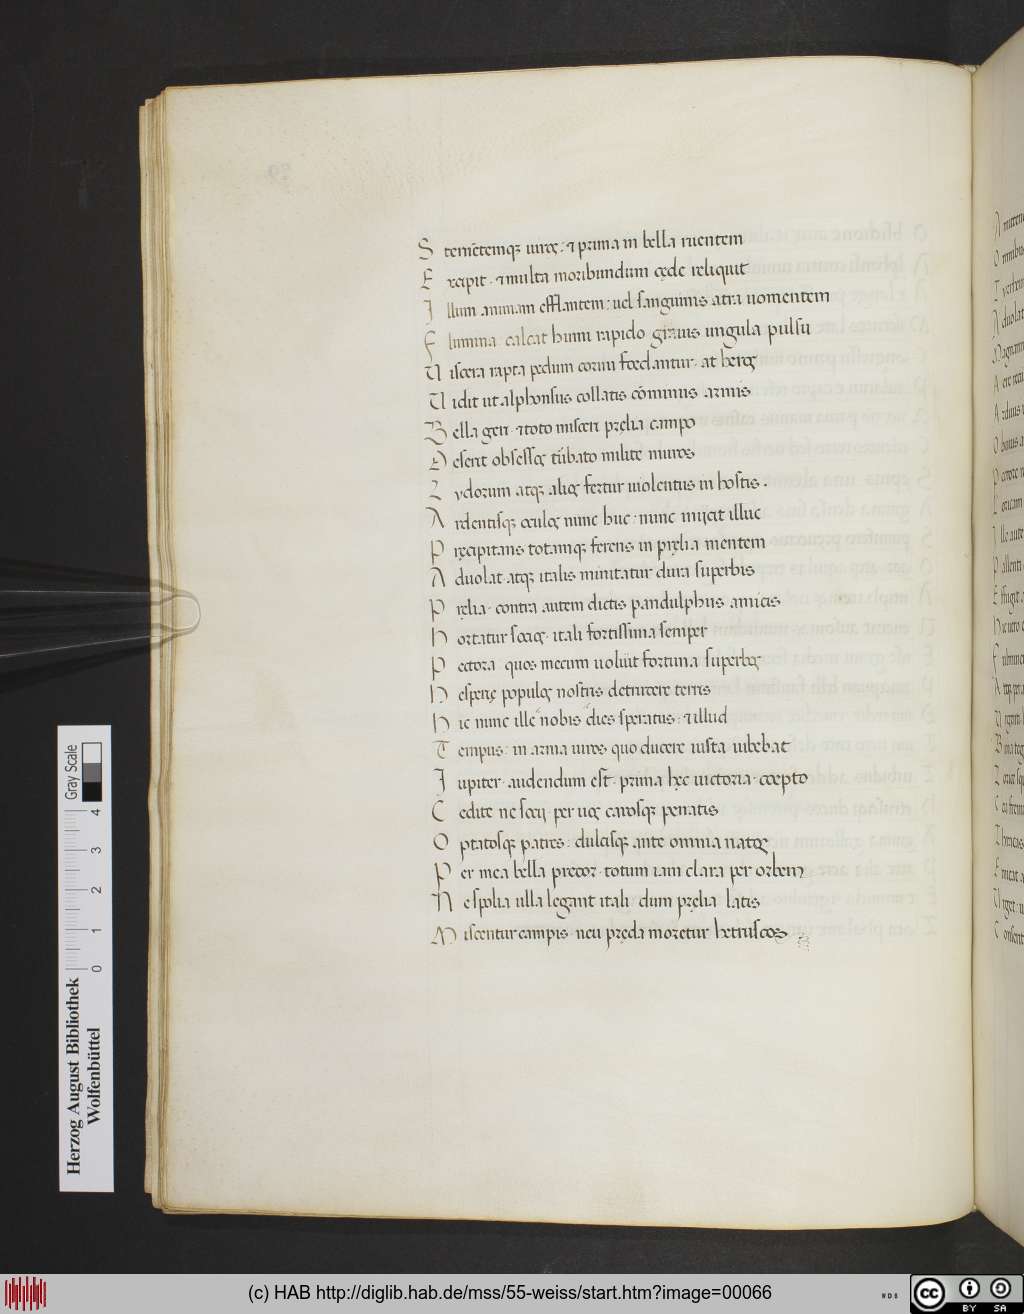 S ternētemqꝫ uiroꝫ: ⁊ prima in bella ruentem
E xcipit · ⁊ multa moribundum cęde reliquit
I llum animam efflantem: uel sanguinis atra uomentem
F lumina: calcat humi rapido grauis ungula pulsu
U iscera rapta pedum cornu foedantur · at heroꝫ
U idit ut alphonsus collatis cōminus armis
B ella geri · ⁊ toto misceri pręlia campo
D eserit obsessoꝫ turbato milite muros
L ydorum atqꝫ alioꝫ fertur uiolentus in hostis ·
A rdentisqꝫ oculoꝫ nunc huc: nunc iniicit illuc
P ręcipitans totamqꝫ ferens in pręlia mentem
A duolat · atqꝫ italis minitatur dura superbis
P ręlia · contra autem dictis pandulphus amicis
H ortatur socioꝫ · itali fortissima semper
P ectora · quos mecum uoluit fortuna superboꝫ
H esperię populoꝫ nostris detrudere terris
H ic nunc ille nobis dies speratus · ⁊ illud
T empus · in arma uiros quo ducere iusta iubebat
I upiter · audendum est · prima hęc uictoria · coepto
C edite ne socii · per uoꝫ carosqꝫ penatis
O ptatosqꝫ patres: dulcisqꝫ ante omnia natoꝫ
P er mea bella precor · totum iam clara per orbem
N e spolia ulla legant itali · dum pręlia latis
M iscentur campis · neu pręda moretur hetruscos
Herzog August Bibliothek
Wolfenbüttel
Gray Scale
0 1 2 3 4
(c) HAB http://diglib.hab.de/mss/55-weiss/start.htm?image=00066
cc BY SA